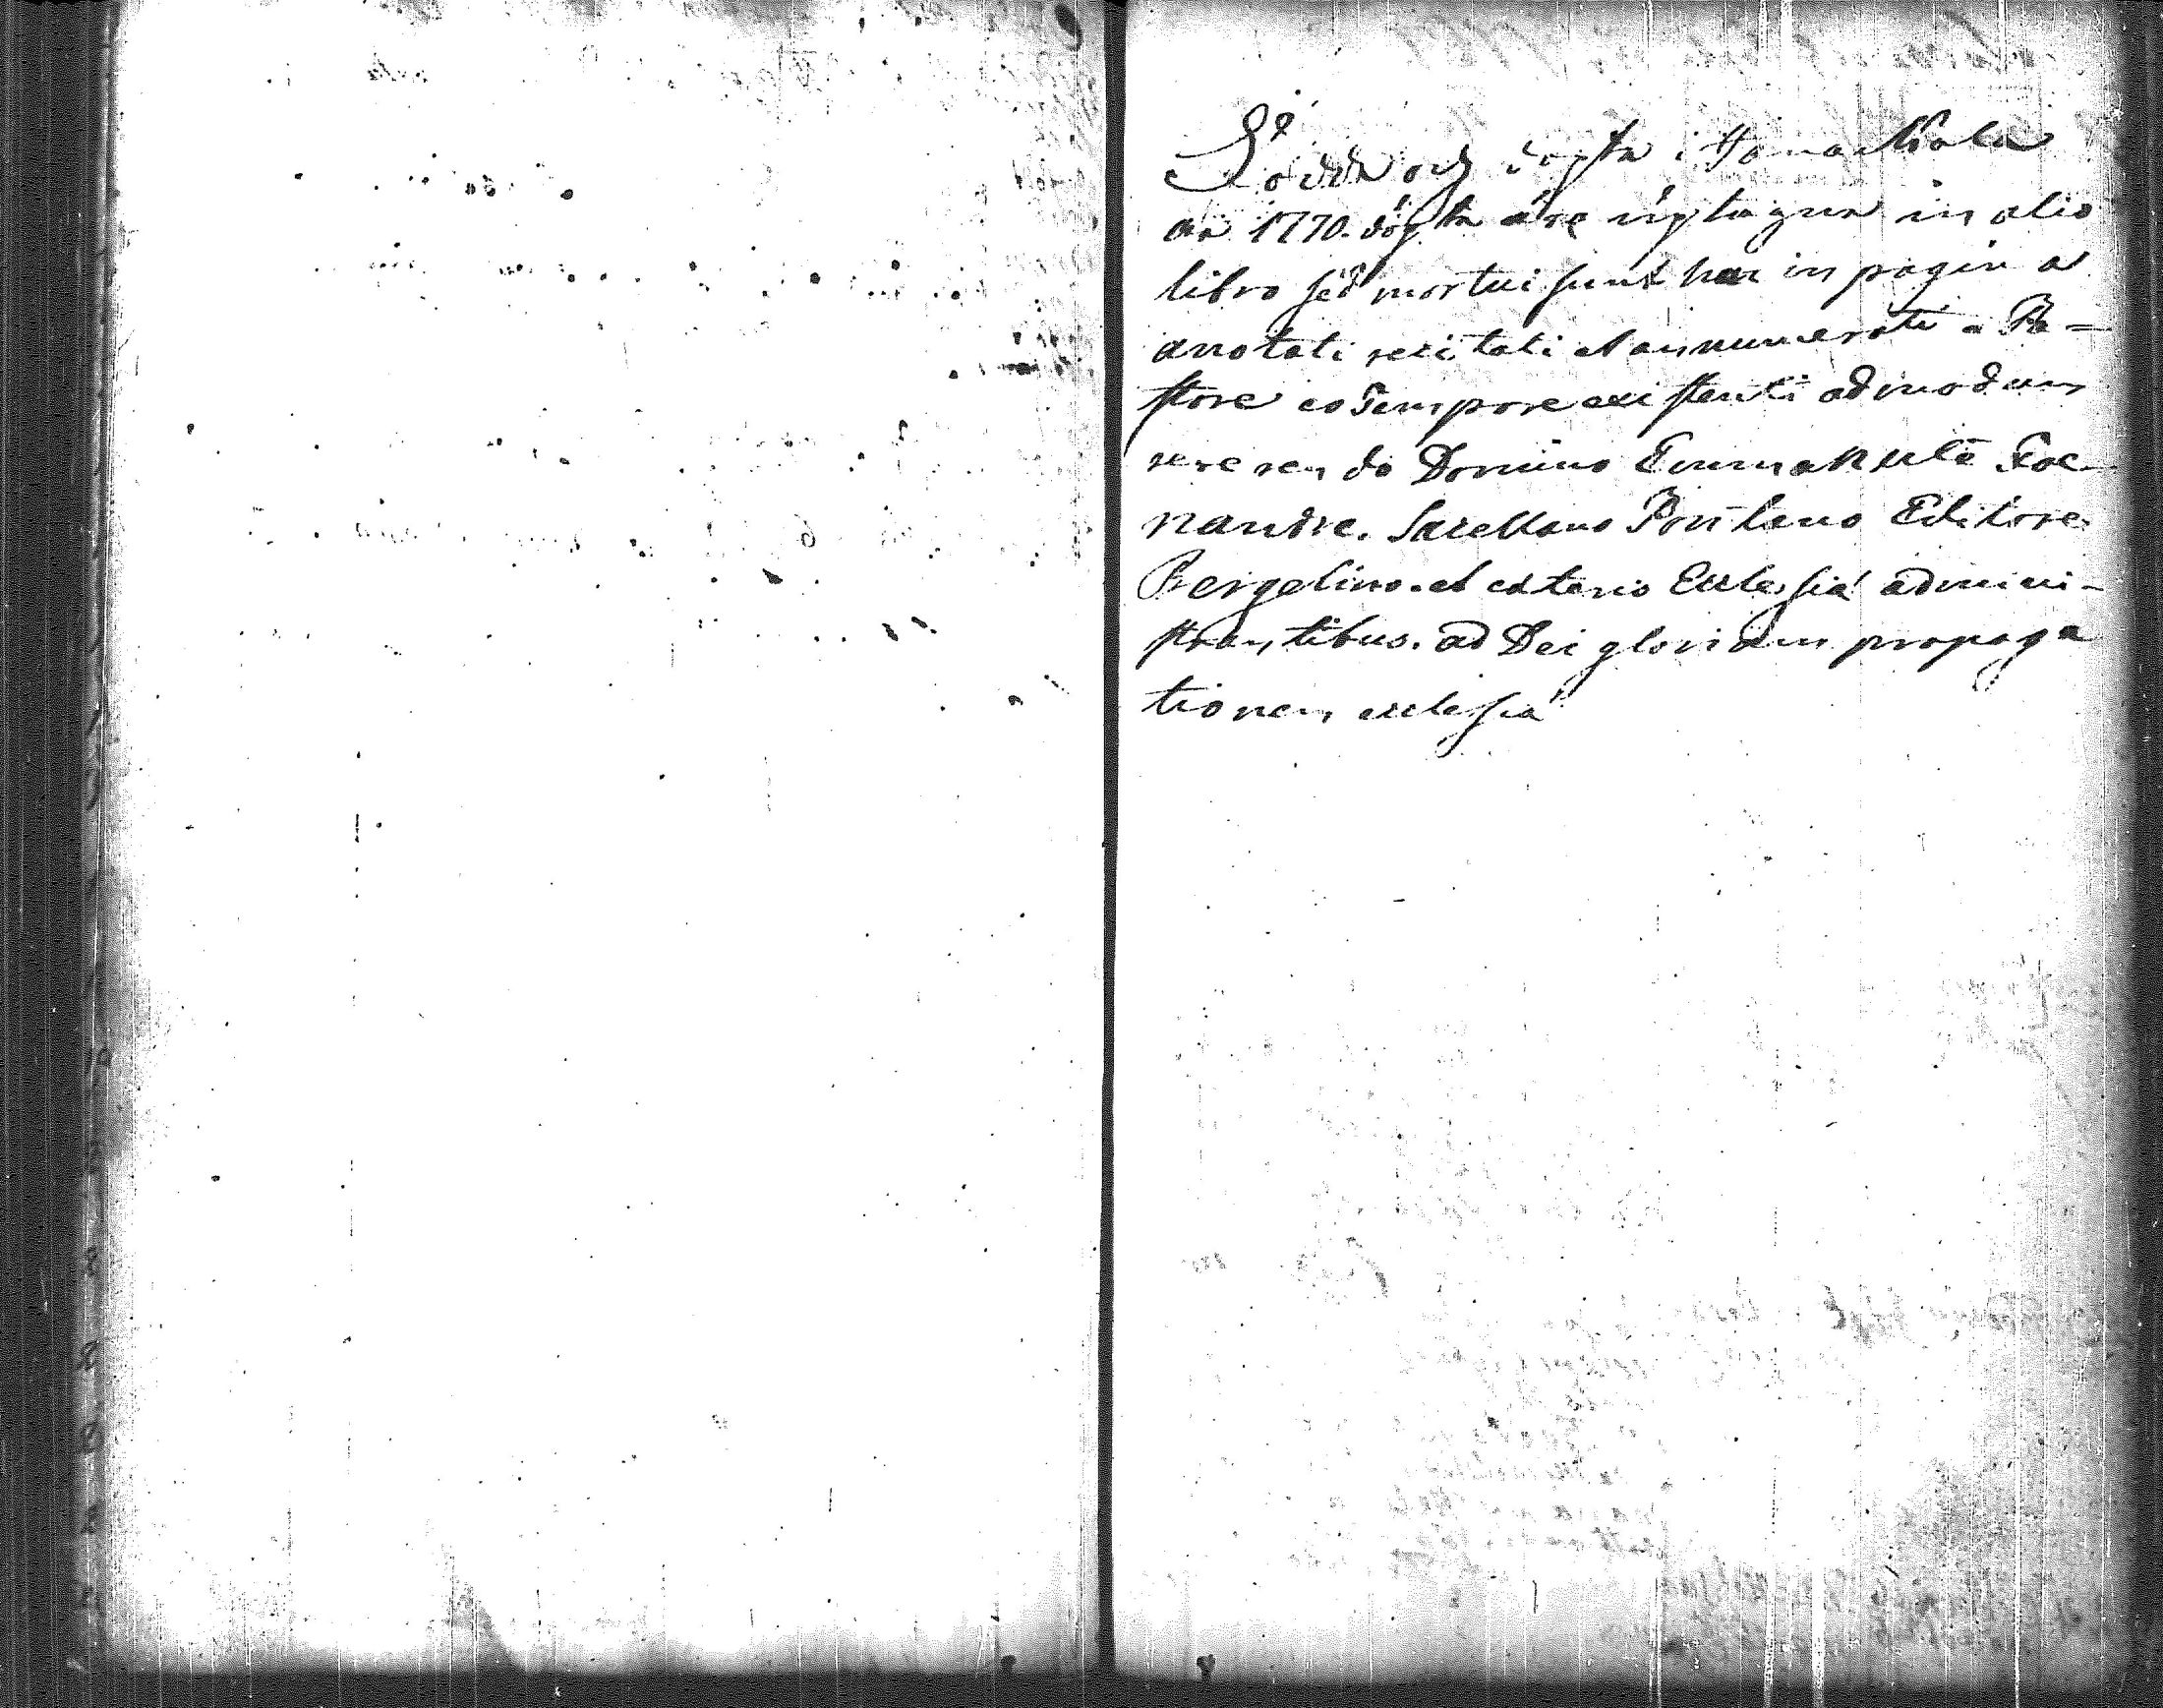 Födda och döpta i Hama Skola
an 1770. döpta äre uptagna in alio
libro sed mortui sunt hac in pagina
anotati recitati et annumerati a Pa=
store eo Tempore existenti admodum
reverendo Domino Emmanuele
nandre. Sacellano Pontano Editore
Bergelino. et cæteris Ecclesiá admini-
strantibus. ad Dei gloriam propaga
tionem ecclesiá